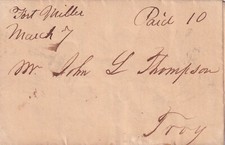 Fort Miller Paid 10
March 7
Mr John L Thompson
Troy